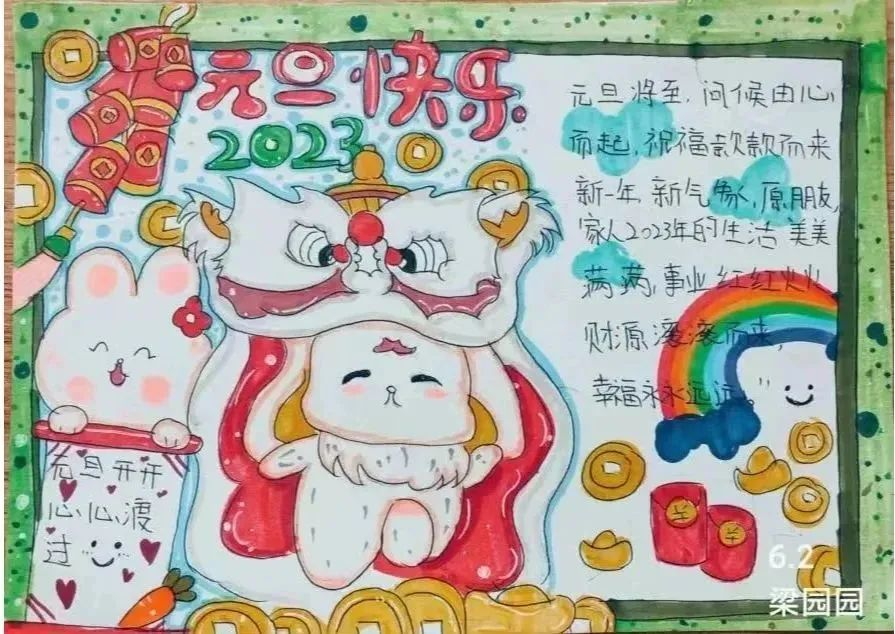 元旦快乐
2023
元旦将至,问候由心
而起,祝福款款而来
新一年,新气象,原朋友,
家人2023年的生活美美
满满,事业红红火火
财源滚滚而来,
幸福永永远远。"
元旦开开
心心渡
过
6.2
梁园园